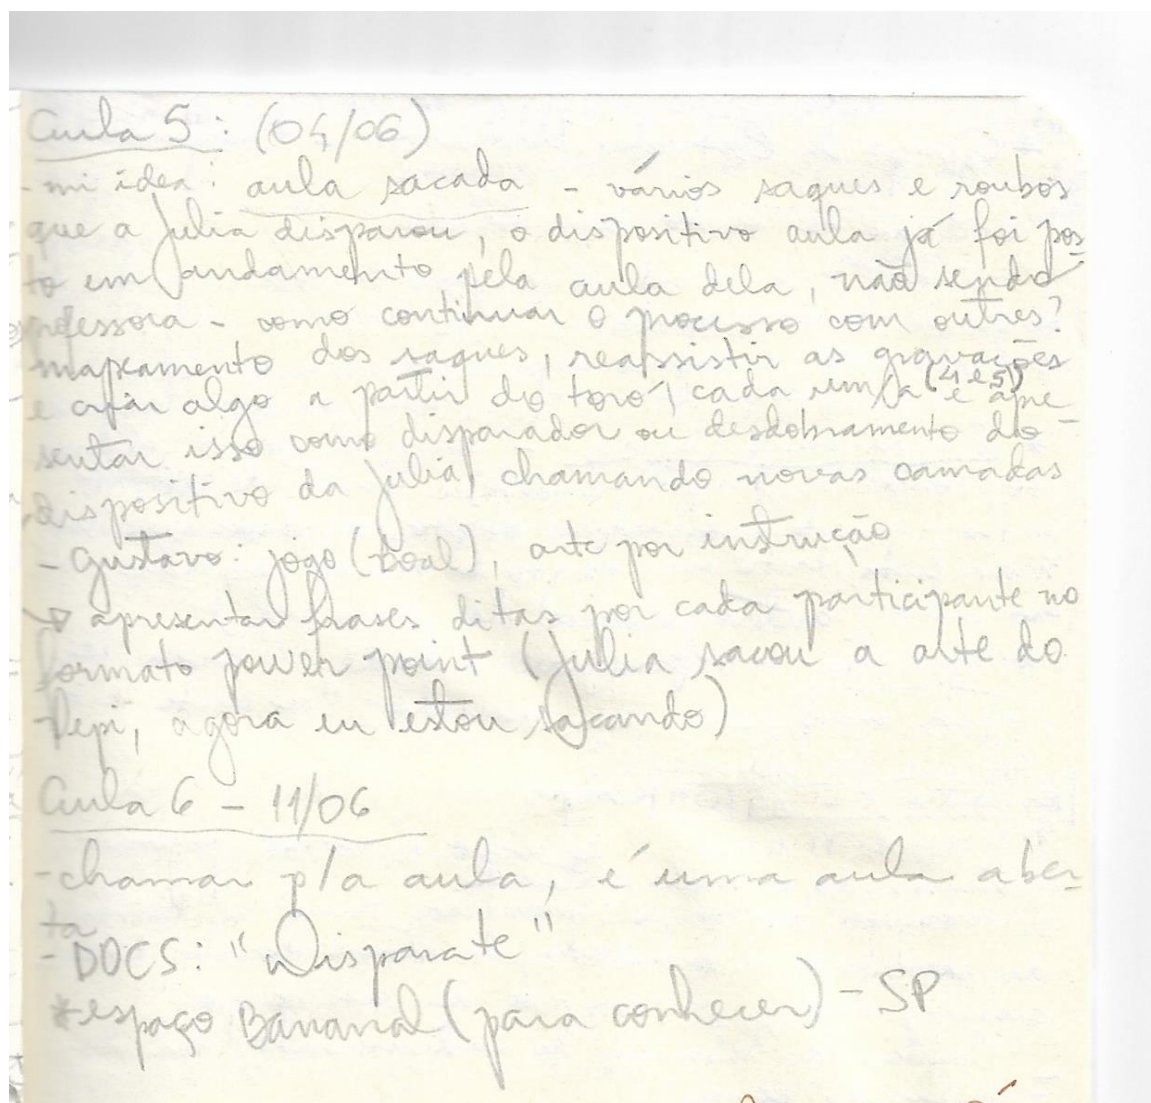 Aula 5: (04/06)
- mi idea: aula sacada - vários saques e roubos
que a Julia disparou, o dispositivo aula já foi pos-
to em andamento pela aula dela, não sendo
professora - como continuar o processo com outres?
mapeamento dos saques, reassistir as gravações (4 e 5)
e criar algo a partir do toró, cada um/a e apre-
sentar isso como disparador ou desdobramento do
dispositivo da Julia, chamando novas camadas
- Gustavo: jogo (boal), arte por instrução
→ apresentar frases ditas por cada participante no
formato power point (Julia sacou a arte do
Pepi, agora eu estou sacando)
Aula 6 - 11/06
- chamar p/a aula, é uma aula aber-
ta
- DOCS: "Disparate"
*espaço Bananal (para conhecer) - SP